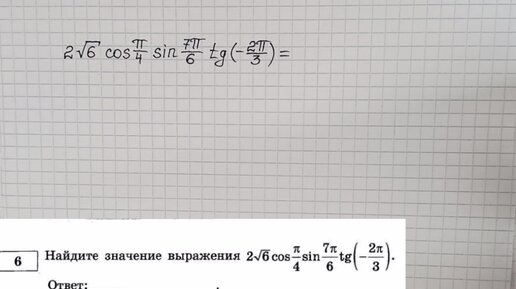 2√6 cos π/4 sin 7π/6 tg(-2π/3) =
6 Найдите значение выражения 2√6 cos π/4 sin 7π/6 tg(-2π/3).
Ответ: